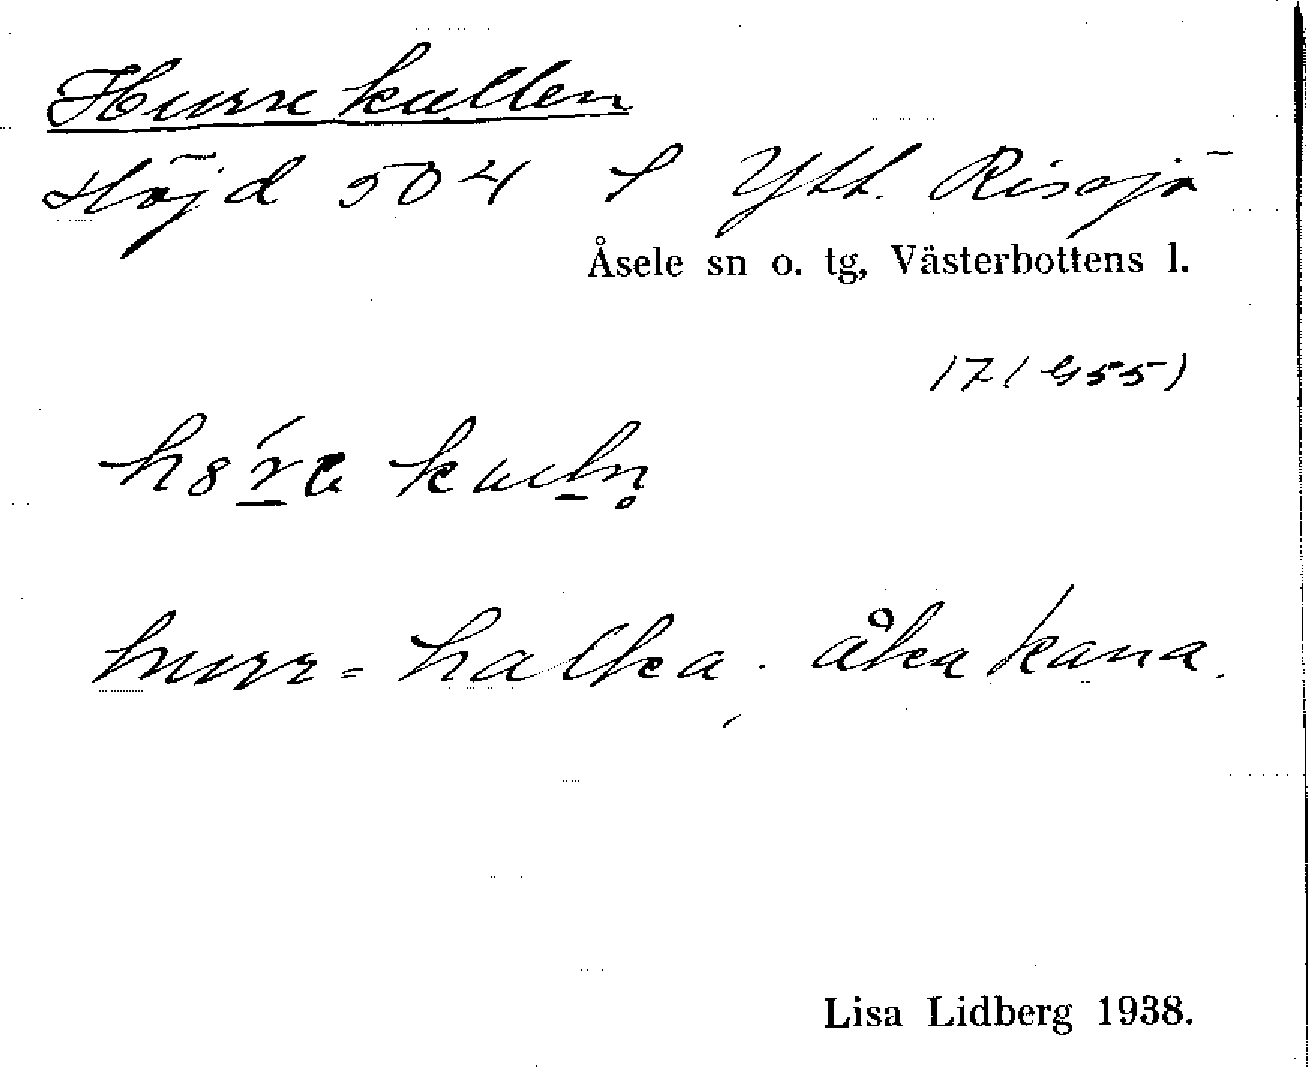 Hurrekullen
Höjd 504 S Ytt. Rissjö
Åsele sn o. tg, Västerbottens l.
hurr = halka. åka kana.
Lisa Lidberg 1938.